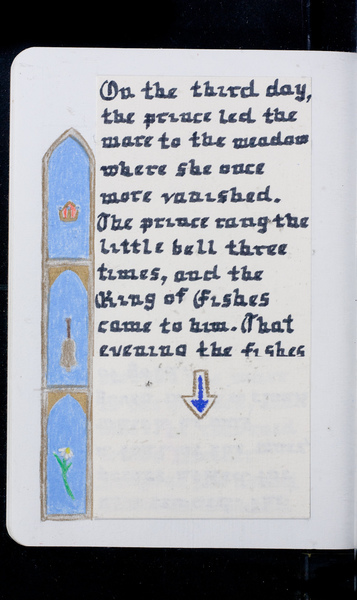 On the third day,
the prince led the
mare to the meadow
where she once
more vanished.
The prince rang the
little bell three
times, and the
King of Fishes
came to him. That
evening the fishes